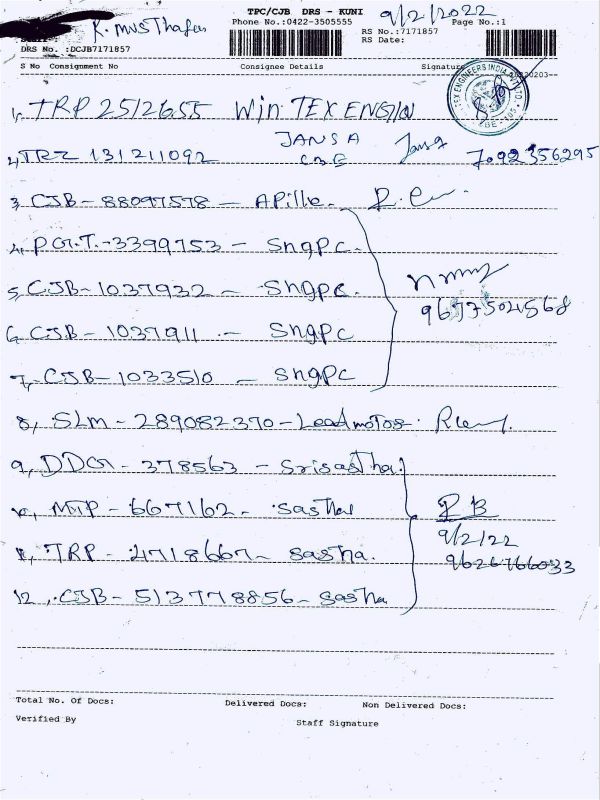 TPC/CJB DRS - KUNI 9/2/2022
K. Musthafa Phone No.:0422-3505555 Page No.:1
RS No.:7171857
DRS No. :DCJB7171857 RS Date:
S No Consignment No Consignee Details Signature
1, TRP 2512655 Win TEX ENGIN
JANSA
2, TRZ 131211092 CBE Jansa 7092356295
3, CJB - 88097578 - Apille.
4, PGT - 3399753 - Sngpc.
5, CJB - 1037932 - Sngpc.
6, CJB - 1037911 - Sngpc
9677504568
7, CJB - 1033510 - Sngpc
8, SLM - 289082370 - Leadmotor.
9, DDG - 378563 - Srisastha.
10, MTP - 667162 - Sastha
9/2/22
11, TRP - 4718667 - Sastha. 9626766033
12, CJB - 513778856 - Sastha
Total No. Of Docs: Delivered Docs: Non Delivered Docs:
Verified By Staff Signature